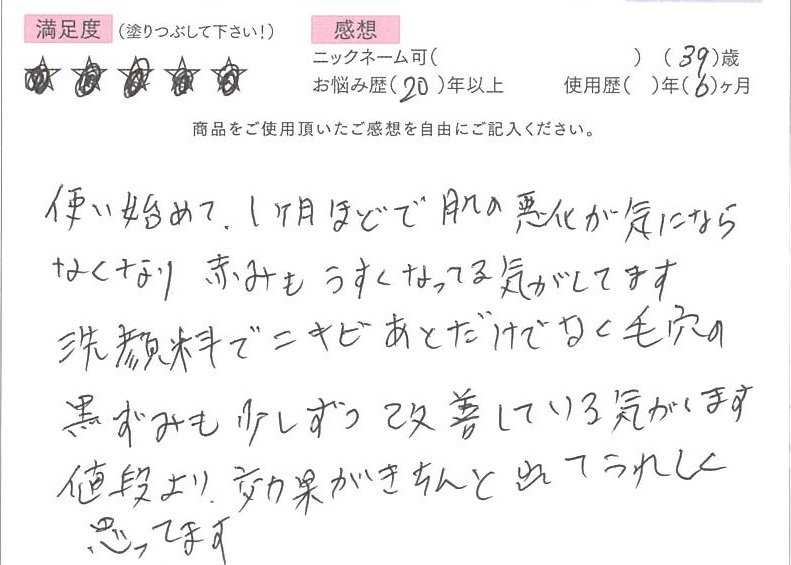 満足度 (塗りつぶして下さい!) 感想
ニックネーム可( ) (39)歳
お悩み歴(20)年以上 使用歴( )年(6)ヶ月
商品をご使用頂いたご感想を自由にご記入ください。
使い始めて、1ヶ月ほどで肌の悪化が気にならなくなり
赤みもうすくなってる気がしてます
洗顔料でニキビあとだけでなく毛穴の
黒ずみも少しずつ改善している気がします
値段より、効果がきちんと出てうれしく
思ってます